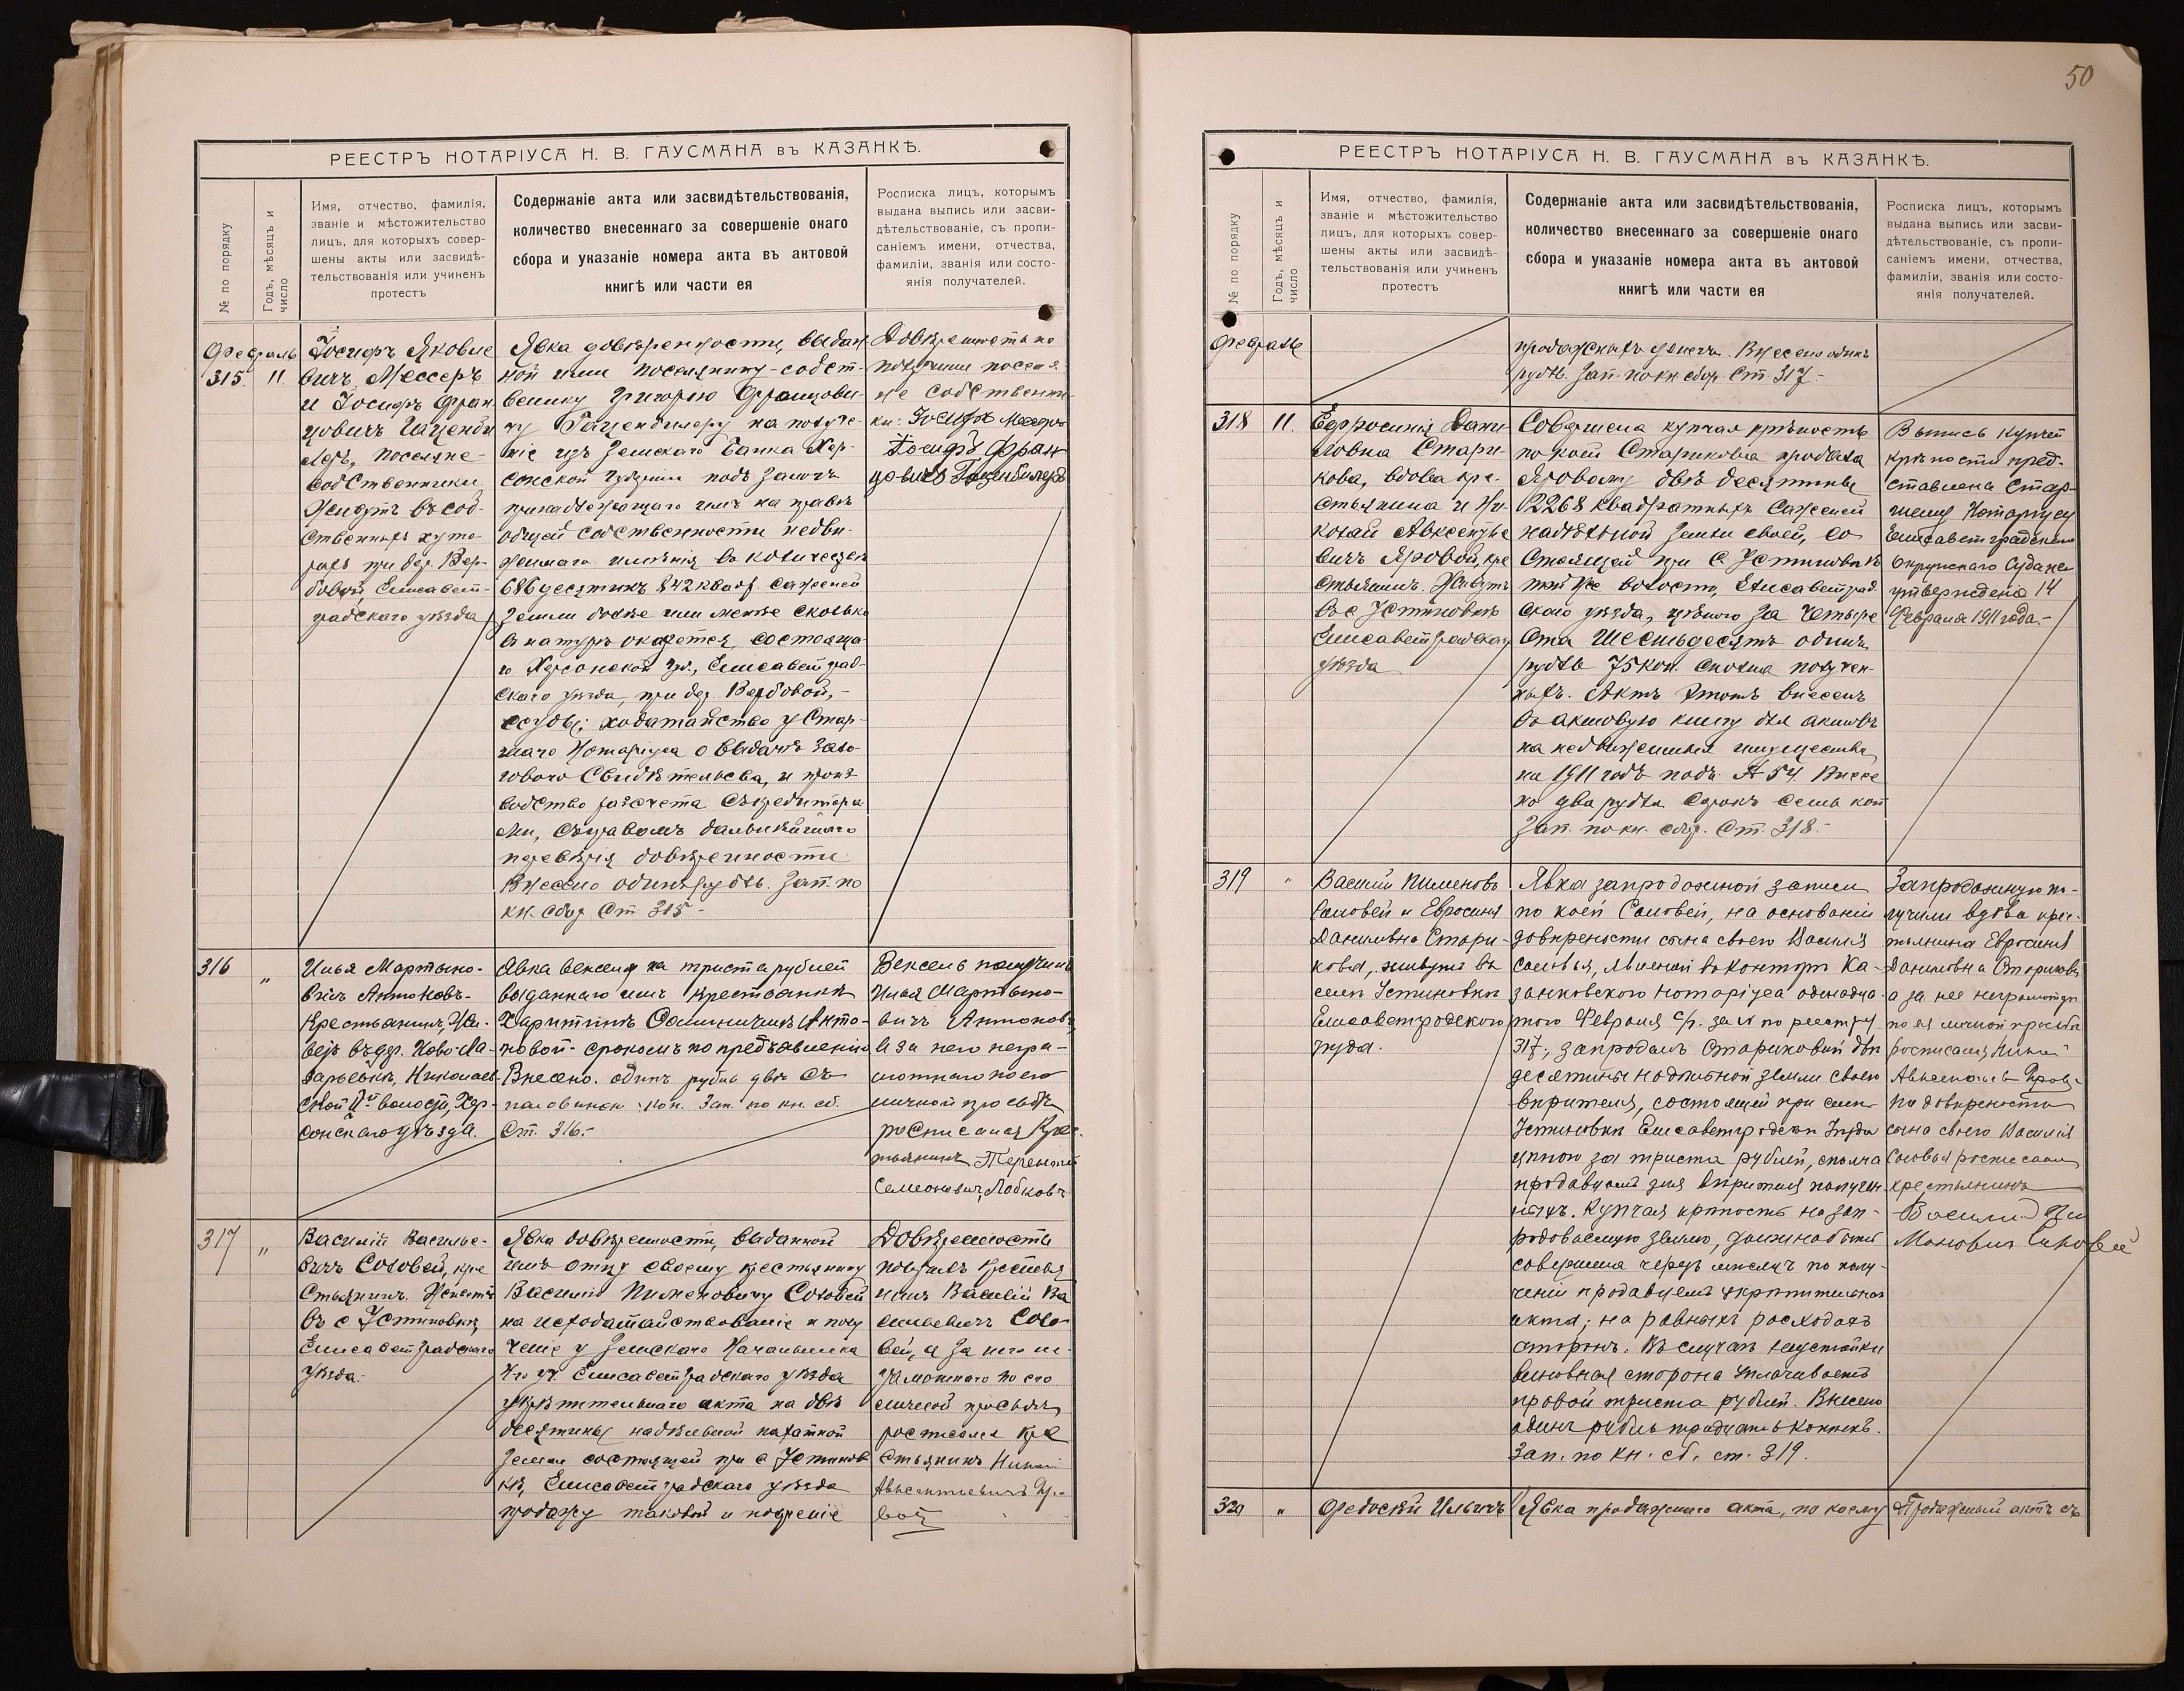 50
РЕЕСТРЪ НОТАРІУСА Н. В. ГАУСМАНА въ КАЗАНКѢ.
№ по порядку
Годъ, мѣсяцъ и
число
Имя, отчество, фамилія,
званіе и мѣстожительство
лицъ, для которыхъ совер-
шены акты или засвидѣ-
тельствованія или учиненъ
протестъ
Содержаніе акта или засвидѣтельствованія,
количество внесеннаго за совершеніе онаго
сбора и указаніе номера акта въ актовой
книгѣ или части ея
Росписка лицъ, которымъ
выдана выпись или засви-
дѣтельствованіе, съ пропи-
саніемъ имени, отчества,
фамиліи, званія или состо-
янія получателей.
Февраль
315 11
Іосифъ Яковле
вичъ Мессеръ
и Іосифъ Фран
цовичъ Гаценби
леръ, поселяне-
собственники
Живутъ въ соб-
ственныхъ хуто-
рахъ при дер. Вер-
бовой, Елисавет-
градского уѣзда
Явка довѣренности, выдан
ной ими поселянину-собст-
веннику Григорію Францови-
чу Гаценбилеру на получе-
ніе изъ Земскаго Банка Хер-
сонской губерніи подъ залогъ
принадлежащаго имъ на правѣ
общей собственности недви-
жимаго имѣнія, въ количествѣ
686 десятинъ 842 квадр. саженей
земли болѣе или менѣе сколько
въ натурѣ окажется, состояща-
го Херсонской губ., Елисаветград-
скаго уѣзда, при дер. Вербовой,-
ссуды; ходатайство у Стар-
шаго Нотаріуса о выдачѣ зало-
гового Свидѣтельсва, и произ
водство разсчета съ кредитора
ми, съ правомъ дальнѣйшаго
перевѣрія довѣренности
Внесено одинъ рубль. Зап. по
кн. сбор. Ст 315 -
Довѣренность по
лучили поселя
не собственни
ки: Іосифъ Мессеръ
Іосифъ Фран
цовичъ Гаценбилеръ
316 „
Илья Мартыно-
вичъ Антоновъ-
Крестьянинъ, Жи-
ветъ въ дер. Ново-Ла-
зарьевкѣ, Николаев-
ской 2й волости, Хер-
сонскаго уѣзда.
Явка векселя на триста рублей
выданнаго имъ крестьянкѣ
Харитинѣ Анто-
новой- срокомъ по предъявленію
Внесено. одинъ рубль двѣ съ
половиной коп. Зап. по кн. сб.
Ст. 316.-
Вексель получилъ
Илья Мартыно-
вичъ Антоновъ
а за него негра-
мотнаго по его
личной просьбѣ
росписался Крес-
тьянинъ Терентій
Семеновичъ Лобковъ
317 „
Василій Василье-
вичъ Соловей, кре
стьянинъ. Живетъ
въ с Устиновкѣ,
Елисаветградскаго
уѣзда.
Явка довѣренности, выданной
имъ отцу своему крестьянину
Василію Пименовичу Соловей
на исходатайствованіе и полу
ченіе у Земскаго Начальника
уч. Елисаветградскаго уѣзда
укрѣпительнаго акта на двѣ
десятины надѣльной пахатной
земли состоящей при с Устинов
кѣ, Елисаветградскаго уѣзда
продажу таковой и полученіе
Довѣренность
получилъ крестья
нинъ Василій Ва
сильевичъ Соло-
вей, а за него не
грамотнаго по его
личной просьбѣ
росписался кре
стьянинъ Николай
Авксентьевичъ Яро
вой
РЕЕСТРЪ НОТАРІУСА Н. В. ГАУСМАНА въ КАЗАНКѢ.
№ по порядку
Годъ, мѣсяцъ и
число
Имя, отчество, фамилія,
званіе и мѣстожительство
лицъ, для которыхъ совер-
шены акты или засвидѣ-
тельствованія или учиненъ
протестъ
Содержаніе акта или засвидѣтельствованія,
количество внесеннаго за совершеніе онаго
сбора и указаніе номера акта въ актовой
книгѣ или части ея
Росписка лицъ, которымъ
выдана выпись или засви-
дѣтельствованіе, съ пропи-
саніемъ имени, отчества,
фамиліи, званія или состо-
янія получателей.
Февраль
продажныхъ денегъ. Внесено одинъ
рубль. Зап. по кн. сбор. Ст. 317 -
318 11.
Евфросинія Дани-
ловна Стари-
кова, вдова кре-
стьянина и Ни-
колай Авксентье
вичъ Яровой, кре
стьянинъ. Живутъ
въ с Устиновкѣ
Елисаветградскаго
уѣзда
Совершена купчая крѣпость
по коей Старикова продала
Яровому двѣ десятины
2268 квадратныхъ саженей
надѣльной земли своей, со
стоящей при с Устиновкѣ
той же волости, Елисаветград
скаго уѣзда, цѣною за четыре
ста шестьдесятъ одинъ
рубль 75 коп. сполна получен-
ныхъ. Актъ этотъ внесенъ
въ актовую книгу для актовъ
на недвижимыя имущества
на 1911 годъ подъ № 54 Внесе
но два рубля сорокъ семь коп
Зап. по кн. сбор. Ст. 318.-
Выпись купчей
крѣпости пред-
ставлена Стар-
шему Нотаріусу
Елисаветградскаго
Окружнаго Суда и
утверждена 14
Февраля 1911 года.-
319 „
Василій Пименовъ
Соловей и Евросинія
Даниловна Стари-
кова, живутъ въ
селѣ Устиновкѣ
Елисаветградского
уѣзда.
Явка запродажной записи
по коей Соловей, на основаніи
довѣрености сына своего Василія
Соловья, явленой въ конторѣ Ка-
занковского нотаріуса одинадца-
того Февраля с/г. за № по реестру
317, запродалъ Стариковой двѣ
десятины надѣльной земли своего
вѣрителя, состоящей при селѣ
Устиновкѣ Елисаветградскаго Уѣзда
цѣною за триста рублей, сполна
продавцомъ для вѣрителя получен-
ныхъ. Купчая крѣпость на зап-
родоваемую землю, должна быть
совершена черезъ мѣсяцъ по полу-
ченіи продавцемъ укрѣпительнаго
акта; на равныхъ расходахъ
сторонъ. Въ случаѣ неустойки
виновная сторона уплачиваетъ
правой триста рублей. Внесено
одинъ рубль тридцать копеекъ.
Зап. по кн. сб. ст. 319.
Запродажную по-
лучили вдова крес-
тьянина Евросинія
Даниловна Старикова
а за нее неграмотную
по ея личной просьбѣ
росписался Николай
Авксентьевъ Яровой
По довѣрености
сына своего Василія
Соловья росписался
крестьянинъ
Василий Пи
Менович Соловей
320 „
Федосѣй Ильичъ
Явка продажнаго акта, по коему
Продажный актъ съ